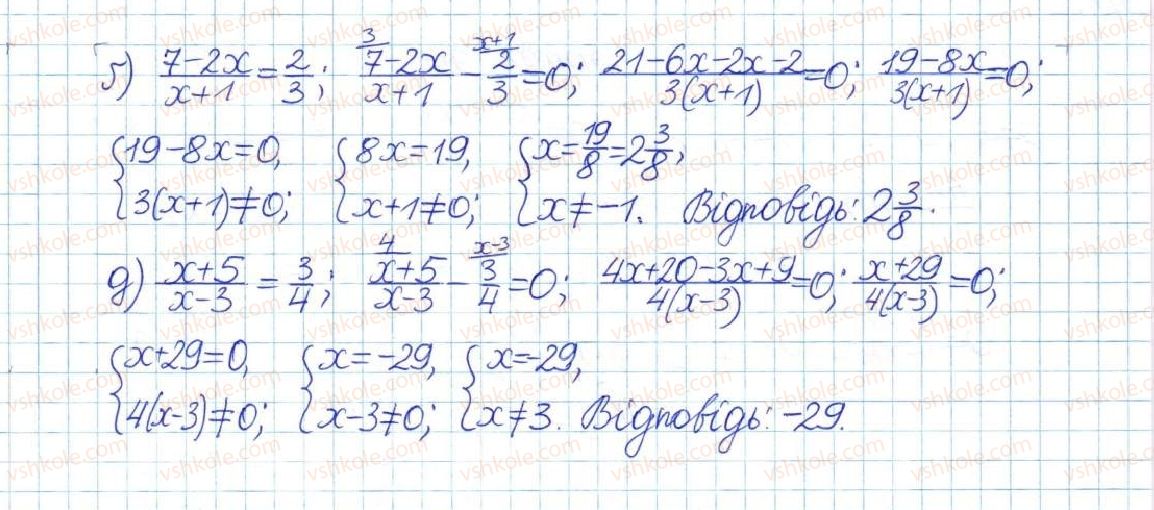 ґ) (7-2x)/(x+1) = 2/3; ³/(7-2x)/(x+1) - ˣ⁺¹/2/3 = 0; (21-6x-2x-2)/(3(x+1)) = 0; (19-8x)/(3(x+1)) = 0;
{19-8x=0, {8x=19, {x=19/8=2 3/8,
{3(x+1)≠0; {x+1≠0; {x≠-1. Відповідь: 2 3/8.
д) (x+5)/(x-3) = 3/4; ⁴/(x+5)/(x-3) - ˣ⁻³/3/4 = 0; (4x+20-3x+9)/(4(x-3)) = 0; (x+29)/(4(x-3)) = 0;
{x+29=0, {x=-29, {x=-29,
{4(x-3)≠0; {x-3≠0; {x≠3. Відповідь: -29.
vshkole.com